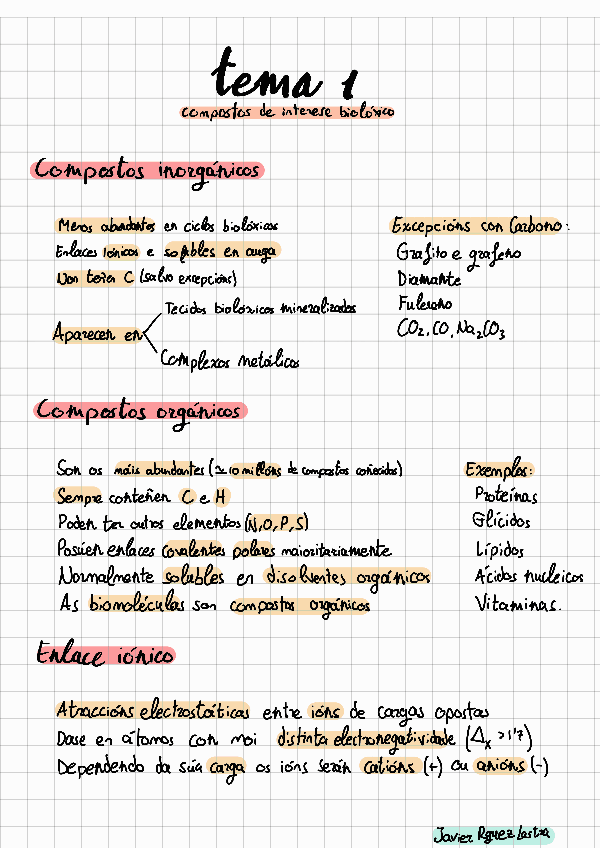 tema 1
compostos de interese biolóxico
Compostos inorgánicos
Menos abundantes en ciclos biolóxicos
Enlaces iónicos e solubles en auga
Non teñen C (salvo excepcións)
Aparecen en
Tecidos biolóxicos mineralizados
Complexos metálicos
Excepcións con Carbono:
Grafito e grafeno
Diamante
Fulereno
CO₂, CO, Na₂CO₃
Compostos orgánicos
Son os máis abundantes (≃10 millóns de compostos coñecidos)
Sempre conteñen C e H
Poden ter outros elementos (N,O,P,S)
Posúen enlaces covalentes polares maioritariamente
Normalmente solubles en disolventes orgánicos
As biomoléculas son compostos orgánicos
Exemplos:
Proteínas
Glícidos
Lípidos
Ácidos nucleicos
Vitaminas.
Enlace iónico
Atraccións electrostáticas entre ións de cargas opostas
Dase en átomos con moi distinta electronegatividade (Δx >1'7)
Dependendo da súa carga os ións serán catións (+) ou anións (-)
Javier Rguez Lastra